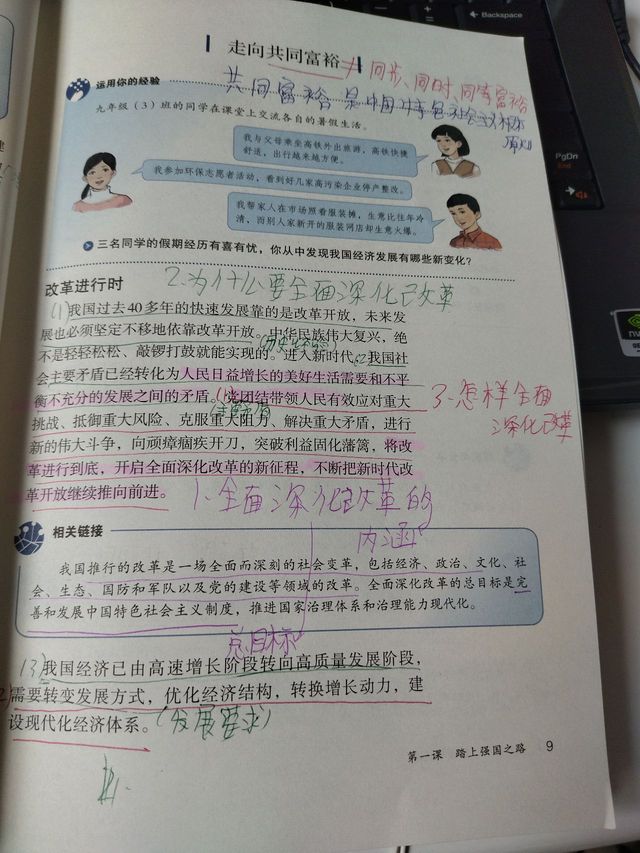 Backspace
走向共同富裕
≠同步、同时、同等富裕
运用你的经验
共同富裕是中国特色社会主义根本
原则
九年级（3）班的同学在课堂上交流各自的暑假生活。
我与父母乘坐高铁外出旅游，高铁快捷
舒适，出行越来越方便。
我参加环保志愿者活动，看到好几家高污染企业停产整改。
我帮家人在市场照看服装摊，生意比往年冷
清，而别人家新开的服装网店却生意火爆。
三名同学的假期经历有喜有忧，你从中发现我国经济发展有哪些新变化？
PgDn
End
改革进行时
2.为什么要全面深化改革
(1)我国过去40多年的快速发展靠的是改革开放，未来发
展也必须坚定不移地依靠改革开放。中华民族伟大复兴，绝
不是轻轻松松、敲锣打鼓就能实现的。进入新时代，我国社
会主要矛盾已经转化为人民日益增长的美好生活需要和不平
衡不充分的发展之间的矛盾。党团结带领人民有效应对重大
挑战、抵御重大风险、克服重大阻力、解决重大矛盾，进行
新的伟大斗争，向顽瘴痼疾开刀，突破利益固化藩篱，将改
革进行到底，开启全面深化改革的新征程，不断把新时代改
革开放继续推向前进。
3.怎样全面
深化改革
1.全面深化改革的
内涵
相关链接
我国推行的改革是一场全面而深刻的社会变革，包括经济、政治、文化、社
会、生态、国防和军队以及党的建设等领域的改革。全面深化改革的总目标是完
善和发展中国特色社会主义制度，推进国家治理体系和治理能力现代化。
总目标
(3)我国经济已由高速增长阶段转向高质量发展阶段，
需要转变发展方式，优化经济结构，转换增长动力，建
设现代化经济体系。
(发展要求)
第一课 踏上强国之路 9